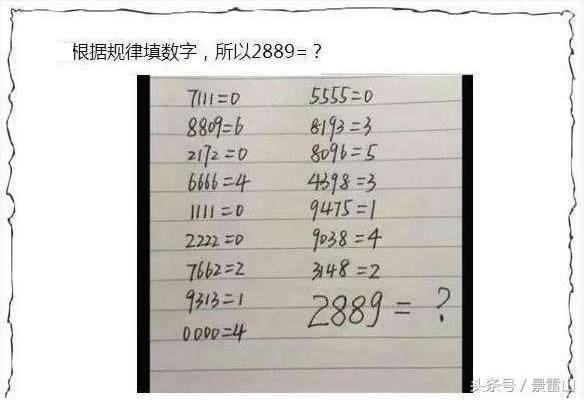 根据规律填数字，所以2889=？
7111=0
8809=6
2172=0
6666=4
1111=0
2222=0
7662=2
9313=1
0000=4
5555=0
8193=3
8096=5
4398=3
9475=1
9038=4
3148=2
2889=?
头条号 / 景雷山